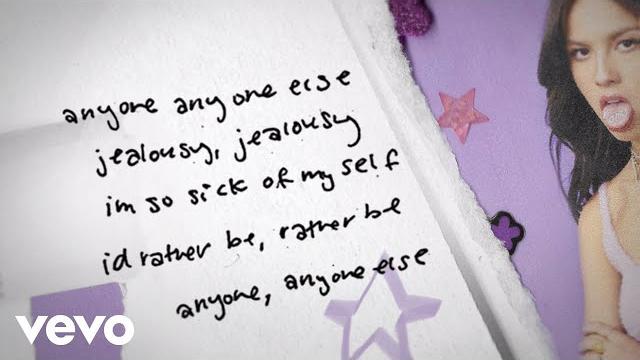 anyone any one else
jealousy, jealousy
im so sick of my self
id rather be, rather be
anyone, anyone else
vevo